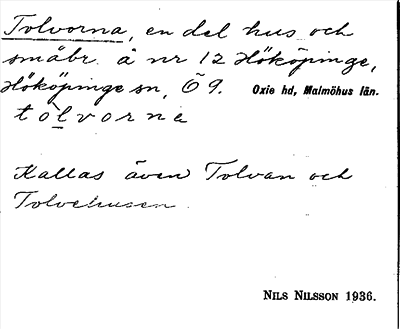 Tolvorna, en del hus och
småbr. å nr 12 Hököpinge,
Hököpinge sn, Ö 9. Oxie hd, Malmöhus län.
tolvorna
Kallas även Tolvan och
Tolvehusen.
NILS NILSSON 1936.